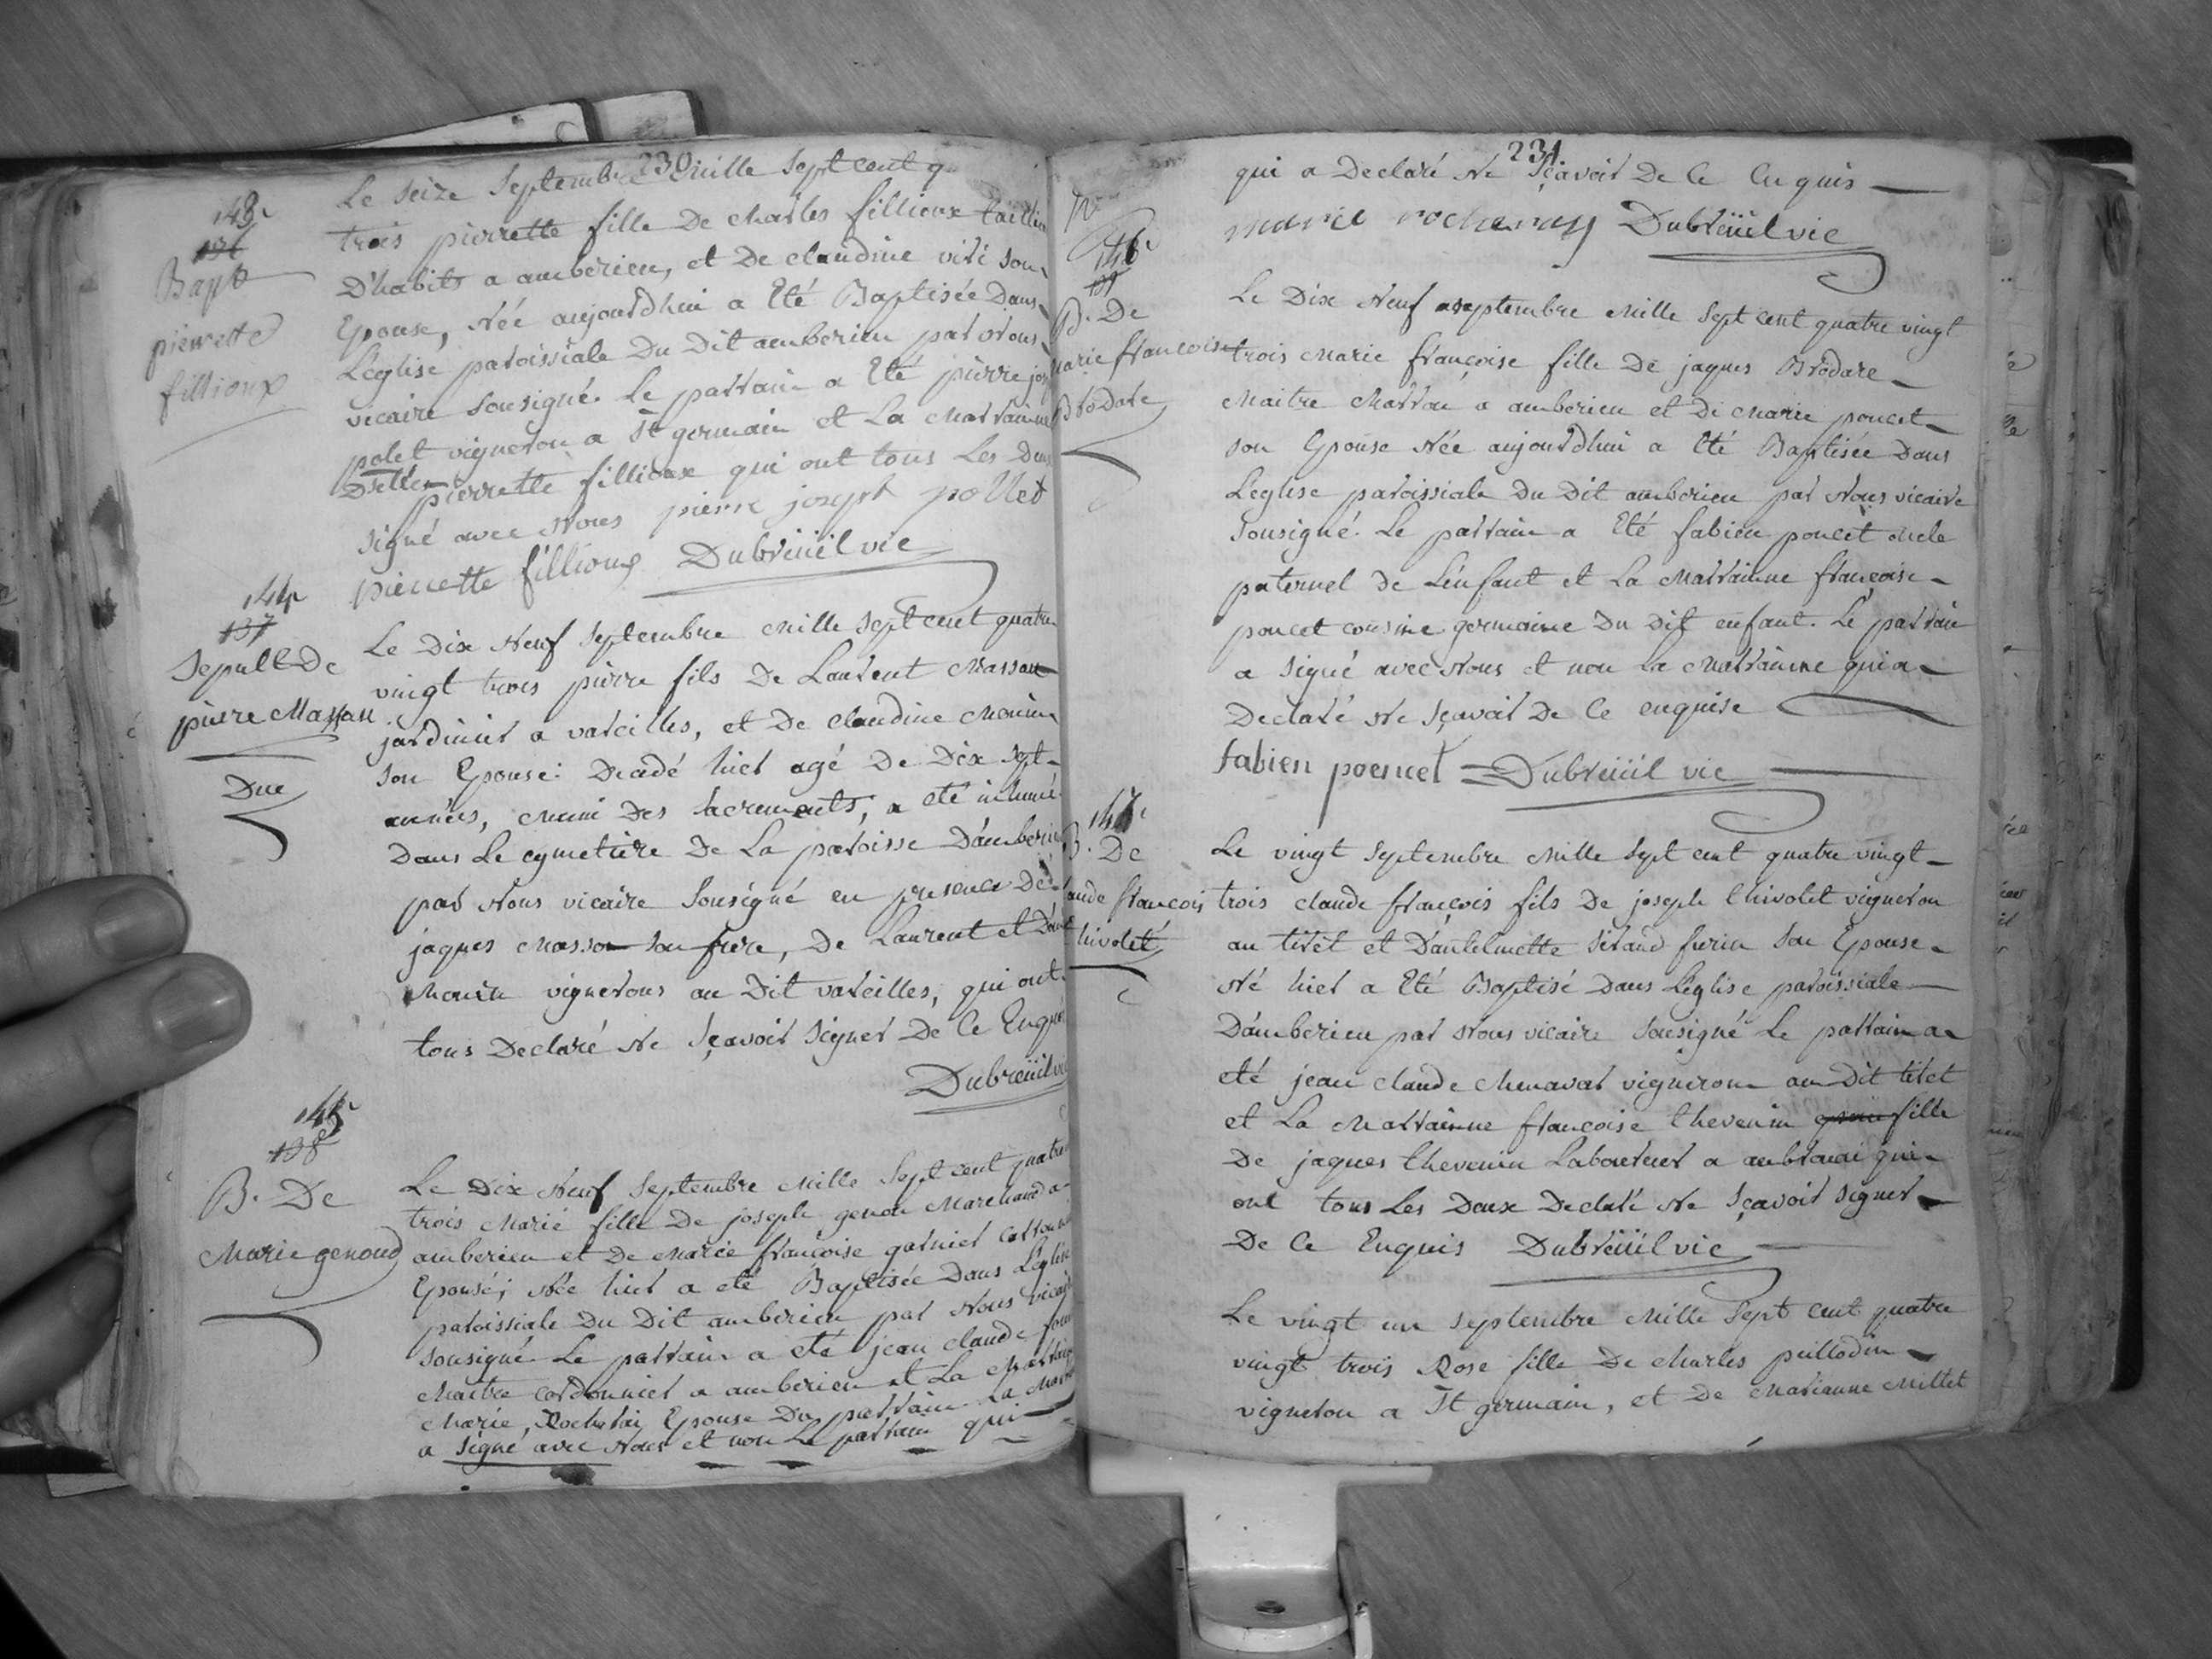 230
143
136
Bapt
pierrette
fillioux
Le seize Septembre mille Sept cent q
trois pierrette fille De charles fillioux
D'habits a amberieu, et De claudine viti son
Epouse, Née aujourd'hui a Eté Baptisée Dans
L'eglise paroissiale Du Dit amberieu par Nous
vicaire Sousigné. Le parrain a Eté pierre
polet vigneron a St germain et La Marrainne
pierrette fillioux qui ont tous Les
signé avec Nous pierre joseph pollet
pierrette fillioux Dubreüil vic
144
137
Sepult De
pierre Masson
Due
Le Dix Neuf Septembre Mille Sept cent quatre
vingt trois pierre fils De Laurent Masson
jardinier a vareilles, et De claudine
son Epouse: Decedé hier agé De Dix Sept
années, Muni Des Sacrements, a eté inhumé
Dans Le cymetiere De La paroisse D'amberieu
par Nous vicaire Sousigné en presence De
jaques Masson son frere, De Laurent et
vignerons au Dit vareilles, qui ont
tous Declaré Ne Sçavoir Signer De Ce
Dubreüil vic
145
138
B. De
Marie genoud
Le Dix Neuf Septembre Mille Sept cent quatre
trois Marie fille De joseph genou Marchand a
amberieu et De Marie françoise garnier
Epouse; Née hier a eté Baptisée Dans L'eglise
paroissiale Du Dit amberieu par Nous vicaire
Sousigné Le parrain a eté jean claude
Maitre cordonnier a amberieu et La Marraine
Marie, Epouse Du parrain La
a Signé avec Nous et non Le parrain qui
231
qui a Declaré Ne Sçavoir De Ce Enquis
marie Dubreüil vic
146
139
B. De
Marie francoise
Brodare
Le Dix Neuf septembre Mille Sept cent quatre vingt
trois Marie françoise fille De jaques Brodare
Maitre a amberieu et De Marie poncet
son Epouse Née aujourd'hui a Eté Baptisée Dans
L'eglise paroissiale Du Dit amberieu par Nous vicaire
Sousigné. Le parrain a Eté fabien poncet oncle
paternel De L'enfant et La Marrainne françoise
poncet cousine germaine Du Dit enfant. Le parrain
a Signé avec Nous et non La Marrainne qui a
Declaré Ne Sçavoir De Ce enquise
fabien Dubreüil vic
147
B. De
claude francois
thivolet
Le vingt Septembre Mille Sept cent quatre vingt
trois claude françois fils De joseph thivolet vigneron
au tiret et D'antelmette Sirand furin Son Epouse
Né hier a Eté Baptisé Dans L'eglise paroissiale
D'amberieu par Nous vicaire Sousigné Le parrain a
eté jean claude Chenavar vigneron au Dit tiret
et La Marrainne francoise thevenin fille
De jaques thevenin Laboureur a qui
ont tous Les Deux Declaré Ne Sçavoir Signer
De Ce Enquis Dubreüil vic
Le vingt un Septembre Mille Sept cent quatre
vingt trois Rose fille De charles
vigneron a St germain, et De Marianne Millet